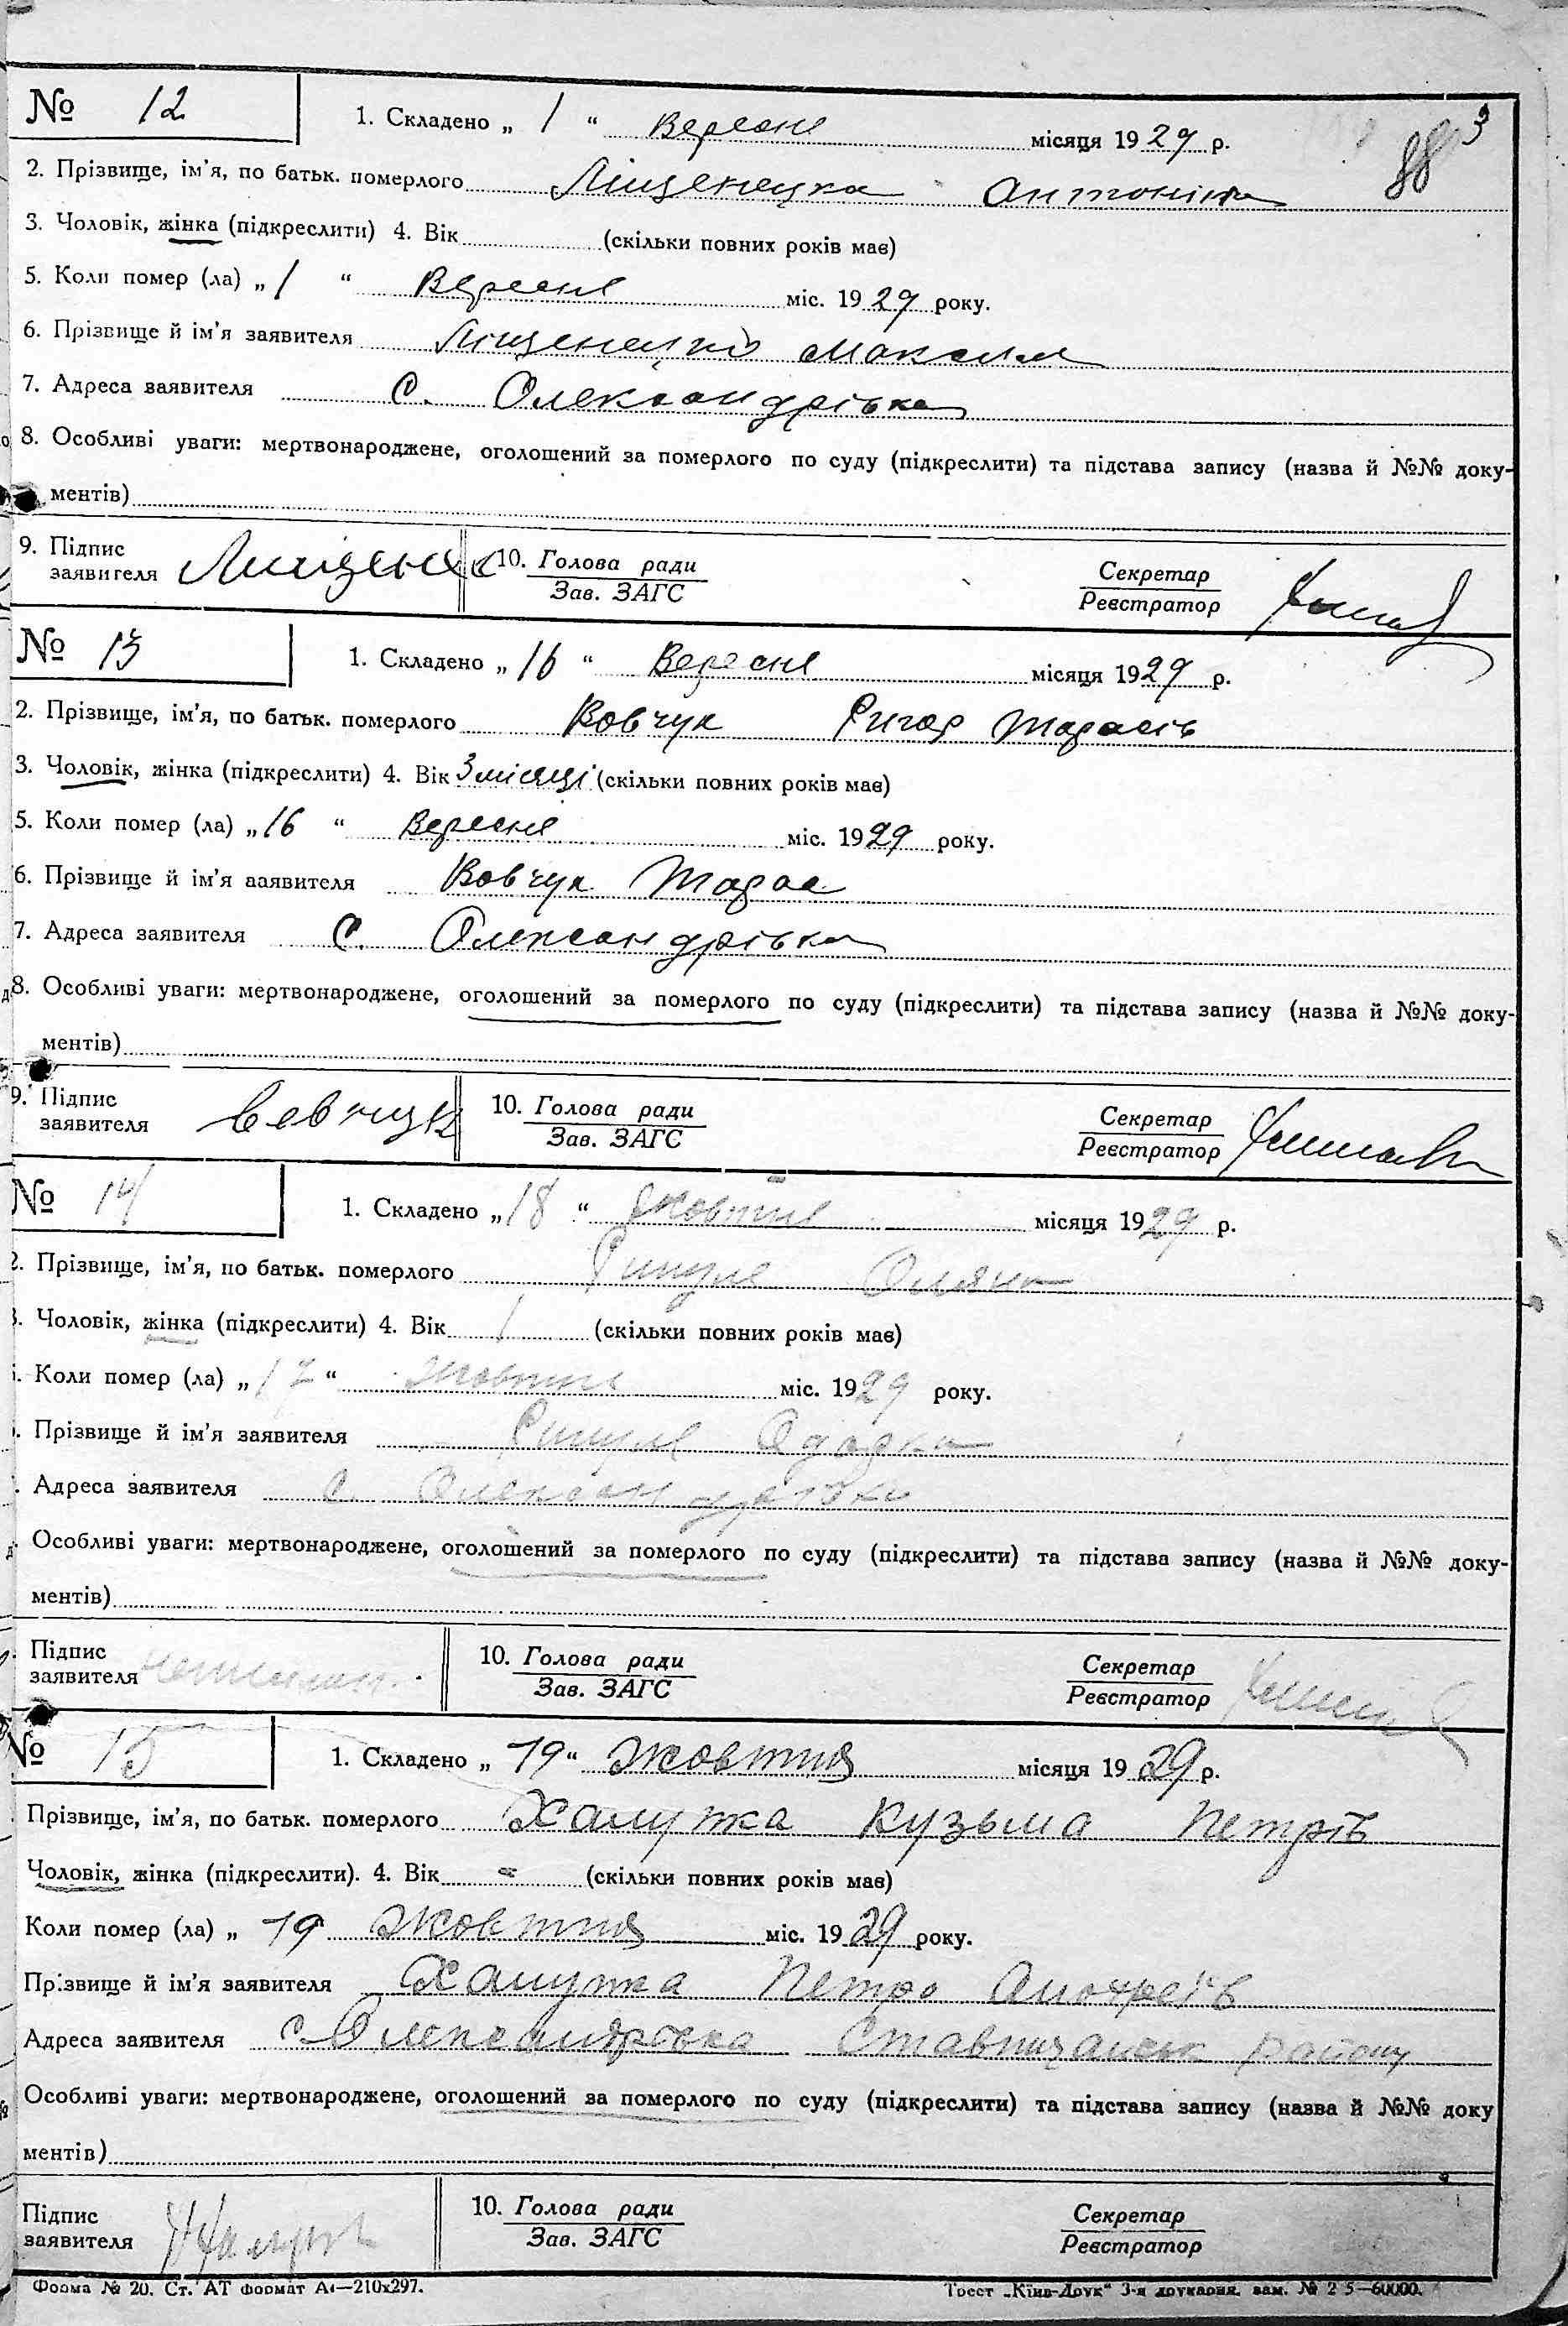 № 12 1. Складено „ 1 “ Вересня місяця 1929 р. 88 3
2. Прізвище, ім'я, по батьк. померлого Ліщенецка Антоніна
3. Чоловік, жінка (підкреслити) 4. Вік (скільки повних років має)
5. Коли помер (ла) „ 1 “ Вересня міс. 1929 року.
6. Прізвище й ім'я заявителя Ліщенецко Максим
7. Адреса заявителя С. Олександрівка
8. Особливі уваги: мертвонароджене, оголошений за померлого по суду (підкреслити) та підстава запису (назва й №№ доку-
ментів)
9. Підпис 10. Голова ради Секретар
заявителя Зав. ЗАГС Реєстратор
№ 13 1. Складено „ 16 “ Вересня місяця 1929 р.
2. Прізвище, ім'я, по батьк. померлого Вовчук Григор Тарасів
3. Чоловік, жінка (підкреслити) 4. Вік 3 місяці (скільки повних років має)
5. Коли помер (ла) „ 16 “ Вересня міс. 1929 року.
6. Прізвище й ім'я заявителя Вовчук Тарас
7. Адреса заявителя С. Олександрівка
8. Особливі уваги: мертвонароджене, оголошений за померлого по суду (підкреслити) та підстава запису (назва й №№ доку-
ментів)
9. Підпис 10. Голова ради Секретар
заявителя Вовчук Зав. ЗАГС Реєстратор
№ 14 1. Складено „ 18 “ Жовтня місяця 1929 р.
2. Прізвище, ім'я, по батьк. померлого
3. Чоловік, жінка (підкреслити) 4. Вік 1 (скільки повних років має)
Коли помер (ла) „ 17 “ Жовтня міс. 1929 року.
Прізвище й ім'я заявителя
Адреса заявителя С. Олександрівка
Особливі уваги: мертвонароджене, оголошений за померлого по суду (підкреслити) та підстава запису (назва й №№ доку-
ментів)
Підпис 10. Голова ради Секретар
заявителя Зав. ЗАГС Реєстратор
№ 15 1. Складено „ 19 “ Жовтня місяця 1929 р.
Прізвище, ім'я, по батьк. померлого Халупка Кузьма Петрів
Чоловік, жінка (підкреслити). 4. Вік - (скільки повних років має)
Коли помер (ла) „ 19 Жовтня міс. 1929 року.
Прізвище й ім'я заявителя Халупка Петро Андреїв
Адреса заявителя с. Олександрівка Ставищанськ району
Особливі уваги: мертвонароджене, оголошений за померлого по суду (підкреслити) та підстава запису (назва й №№ доку
ментів)
Підпис 10. Голова ради Секретар
заявителя Зав. ЗАГС Реєстратор
Форма № 20. Ст. АТ формат А4—210х297. Трест „Київ-Друк“ 3-я друкарня. зам. № 2 5—60000.